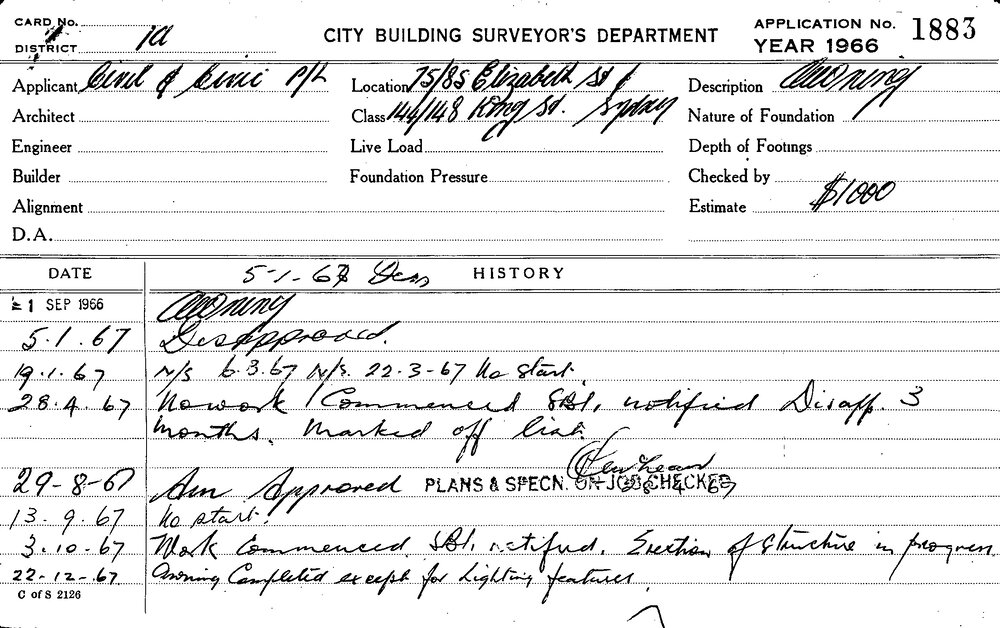 CARD No.
DISTRICT 1a
CITY BUILDING SURVEYOR'S DEPARTMENT
APPLICATION No. 1883
YEAR 1966
Applicant Civil & Civic P/L
Location 75/85 Elizabeth St /
Description Awning
Architect
Class 144/148 King St. Sydney
Nature of Foundation
Engineer
Live Load
Depth of Footings
Builder
Foundation Pressure
Checked by
Alignment
Estimate $1000
D.A.
DATE
5-1-67
HISTORY
1 SEP 1966 Awning
5.1.67 Disapproved.
19.1.67 N/S 6.3.67 N/S. 22-3-67 No start.
28.4.67 No work Commenced SBI. notified Disapp. 3
months. Marked off list.
29-8-67 Am Approved PLANS & SPECN. ON JOB CHECKED
13.9.67 No start.
3.10.67 Work Commenced. SBI. notified. Erection of structure in progress
22-12-67 Awning Completed except for Lighting features.
C of S 2126